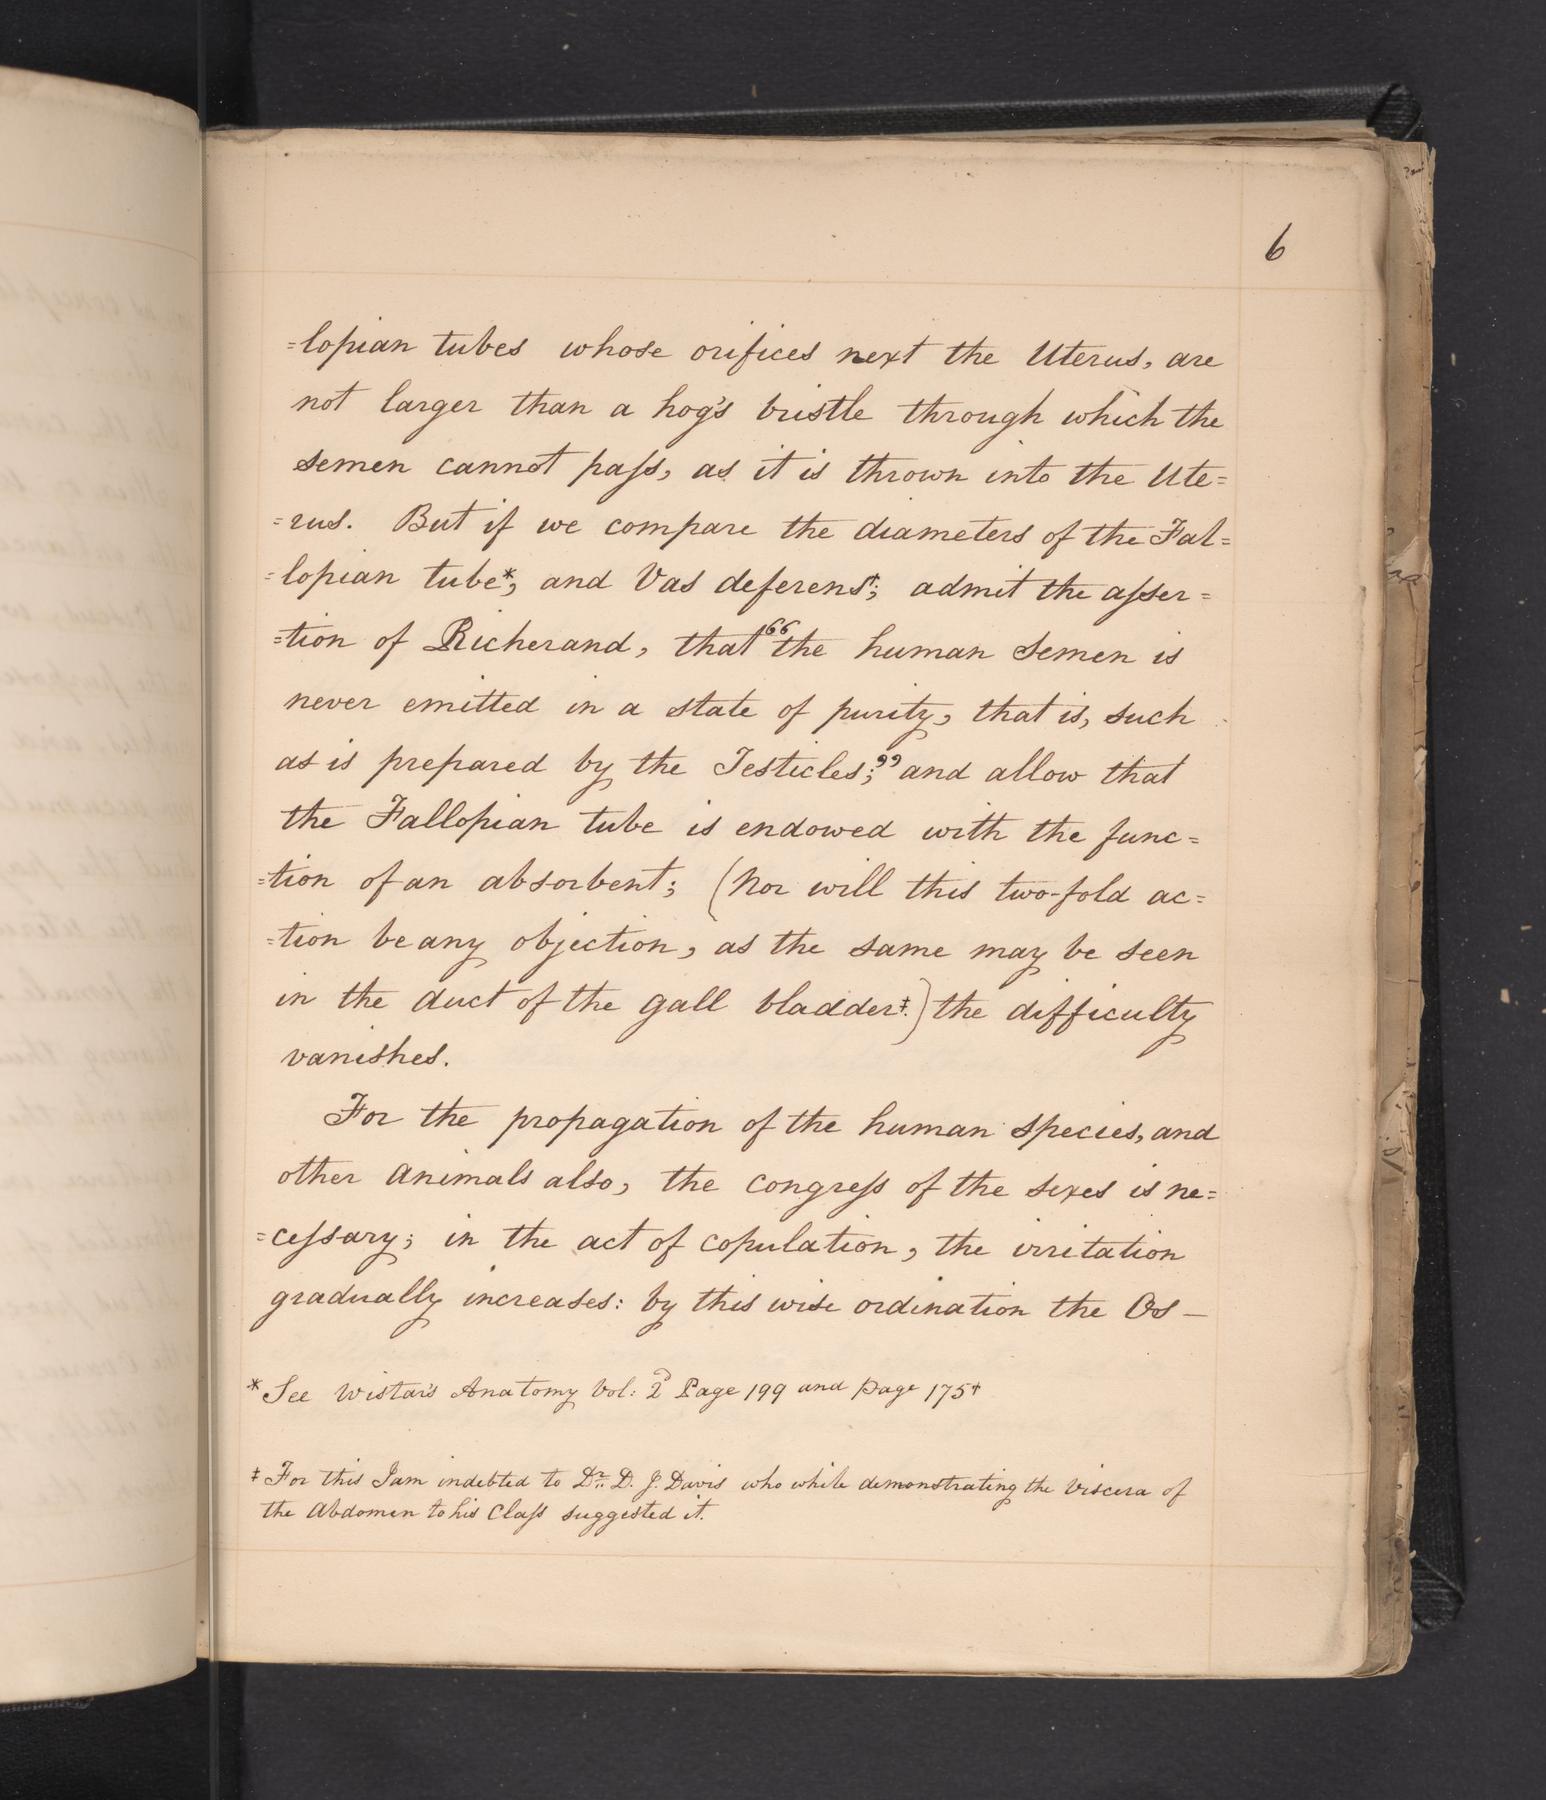 6
=lopian tubes whose orifices next the Uterus, are
not larger than a hog's bristle through which the
semen cannot paſs, as it is thrown into the Ute=
=rus. But if we compare the diameters of the Fal=
=lopian tube*, and Vas deferens†; admit the aſser=
=tion of Richerand, that “the human semen is
never emitted in a state of purity, that is, such
as is prepared by the Testicles;” and allow that
the Fallopian tube is endowed with the func=
=tion of an absorbent; (Nor will this two-fold ac=
=tion be any objection, as the same may be seen
in the duct of the gall bladder‡.) the difficulty
vanishes.
For the propagation of the human species, and
other animals also, the congreſs of the sexes is ne=
=ceſsary; in the act of copulation, the irritation
gradually increases: by this wise ordination the Os—
* See Wistar's Anatomy Vol: 2d Page 199 and Page 175†
‡ For this I am indebted to Dr. D. J. Davis who while demonstrating the Viscera of
the Abdomen to his Claſs suggested it.